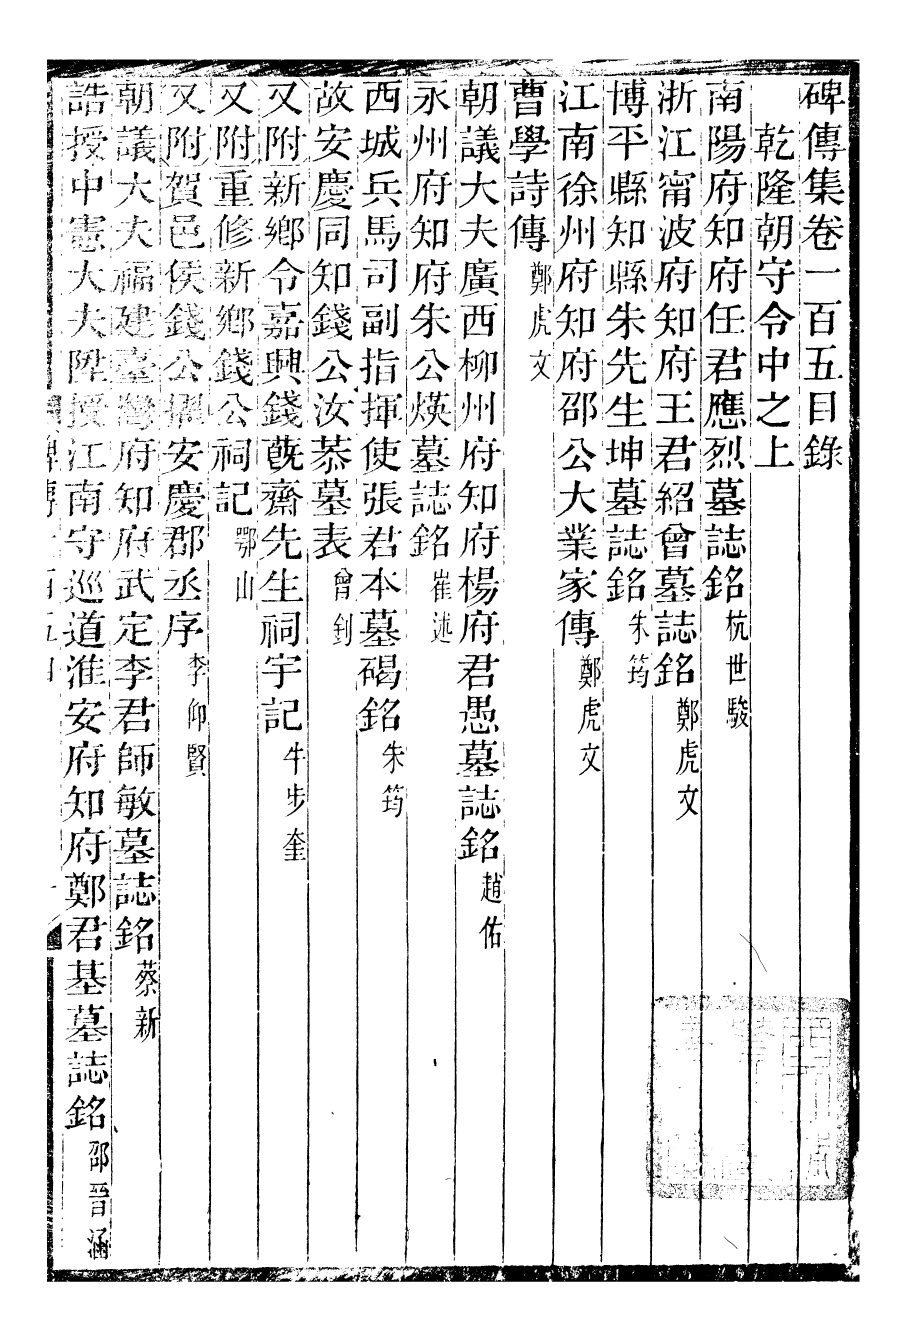 碑傳集卷一百五目錄
乾隆朝守令中之上
南陽府知府任君應烈墓誌銘 杭世駿
浙江甯波府知府王君紹曾墓誌銘 鄭虎文
博平縣知縣朱先生坤墓誌銘 朱筠
江南徐州府知府邵公大業家傳 鄭虎文
曹學詩傳 鄭虎文
朝議大夫廣西柳州府知府楊府君愚墓誌銘 趙佑
永州府知府朱公煐墓誌銘 崔述
西城兵馬司副指揮使張君本墓碣銘 朱筠
故安慶同知錢公汝恭墓表 曾釗
又附新鄉令嘉興錢旣齋先生祠宇記 牛步奎
又附重修新鄉錢公祠記 鄂山
又附賀邑侯錢公擢安慶郡丞序 李仰賢
朝議大夫福建臺灣府知府武定李君師敏墓誌銘 蔡新
誥授中憲大夫陞授江南守巡道淮安府知府鄭君基墓誌銘 邵晋涵